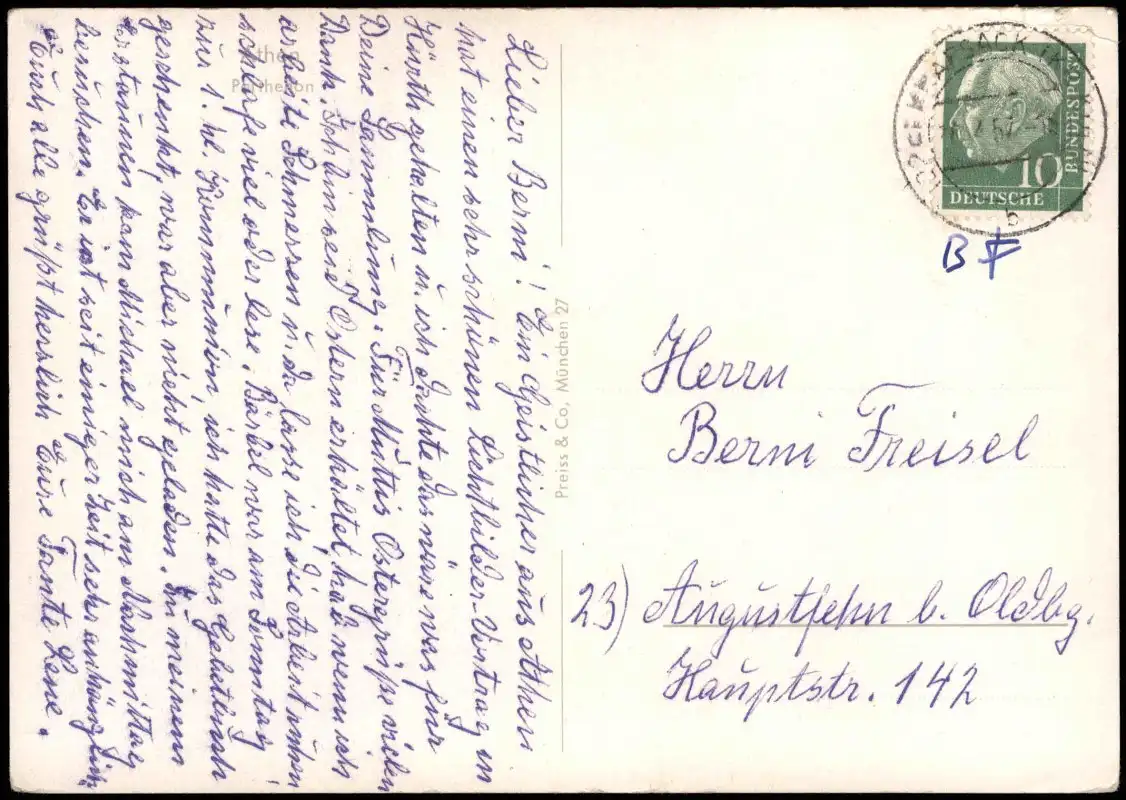 Athen
Parthenon
Lieber Berni! Ein Geistlicher aus Athen
hat einen sehr schönen Lichtbilder-Vortrag in
Hürth gehalten u. ich dachte das wäre was für
Deine Sammlung. Für Muttis Ostergrüße vielen
Dank. Ich bin seid Ostern erkältet, hab wenn ich
arbeite Schmerzen u. da lasse ich die Arbeit ruhen
schlafe viel oder lese. Bärbel war am Sonntag
zur 1. hl. Kommunion, ich hatte das Gebetbuch
geschenkt, war aber nicht geladen. Zu meinem
Erstaunen kam Michael mich am Nachmittag
besuchen. Er ist seit einiger Zeit sehr anhänglich.
Euch alle grüßt herzlich Eure Tante Lene.
Preiss & Co, München 27
DEUTSCHE
BUNDESPOST
10
b
B F
Herrn
Berni Freisel
23) Augustfehn b. Oldbg.
Hauptstr. 142